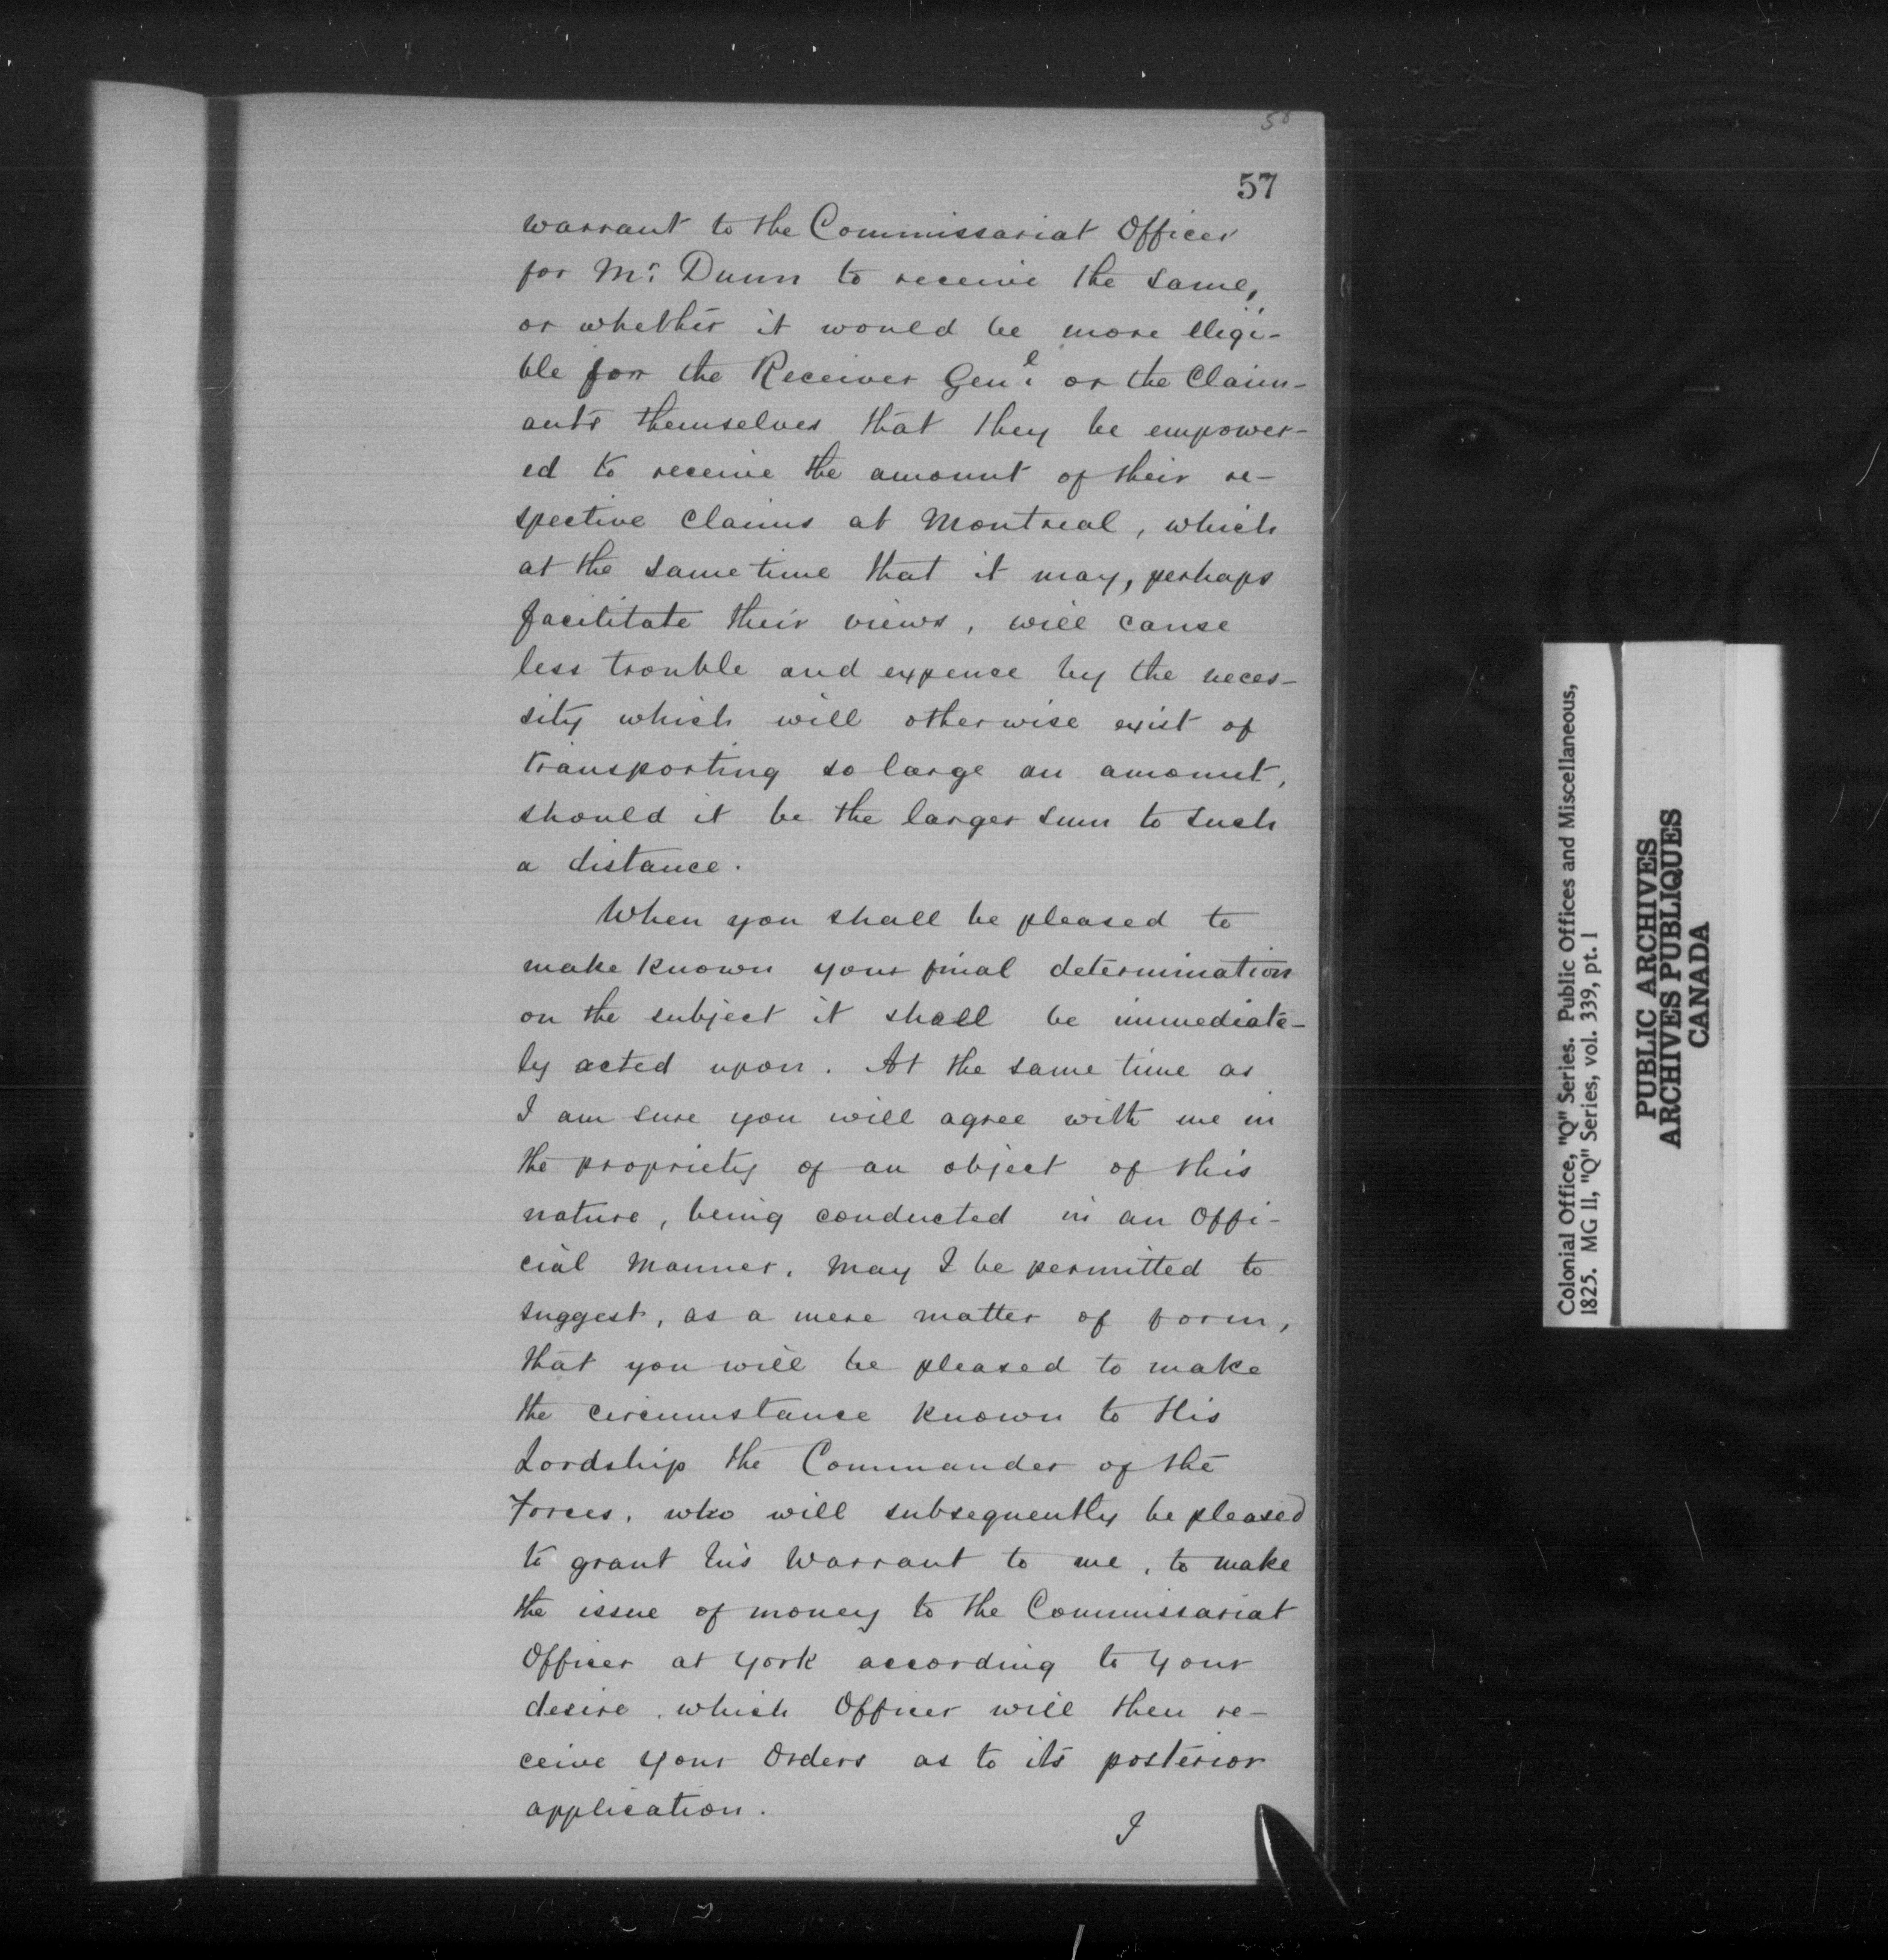 57
warrant to the Commissariat Officer
for Mr. Dunn to receive the same,
or whether it would be more eligi-
ble for the Receiver Genl. or the Claim-
ants themselves that they be empower-
ed to receive the amount of their re-
spective claims at Montreal, which
at the same time that it may, perhaps
facilitate their views, will cause
less trouble and expence by the neces-
sity which will otherwise exist of
transporting so large an amount,
should it be the larger sum to such
a distance.
When you shall be pleased to
make known your final determination
on the subject it shall be immediate-
ly acted upon. At the same time as
I am sure you will agree with me in
the propriety of an object of this
nature, being conducted in an Offi-
cial manner, may I be permitted to
suggest, as a mere matter of form,
that you will be pleased to make
the circumstance known to His
Lordship the Commander of the
Forces, who will subsequently be pleased
to grant his Warrant to me, to make
the issue of money to the Commissariat
Officer at York according to your
desire, which Officer will then re-
ceive your Orders as to its posterior
application.
I
Colonial Office, "Q" Series. Public Offices and Miscellaneous,
1825. MG 11, "Q" Series, vol. 339, pt. 1
PUBLIC ARCHIVES
ARCHIVES PUBLIQUES
CANADA